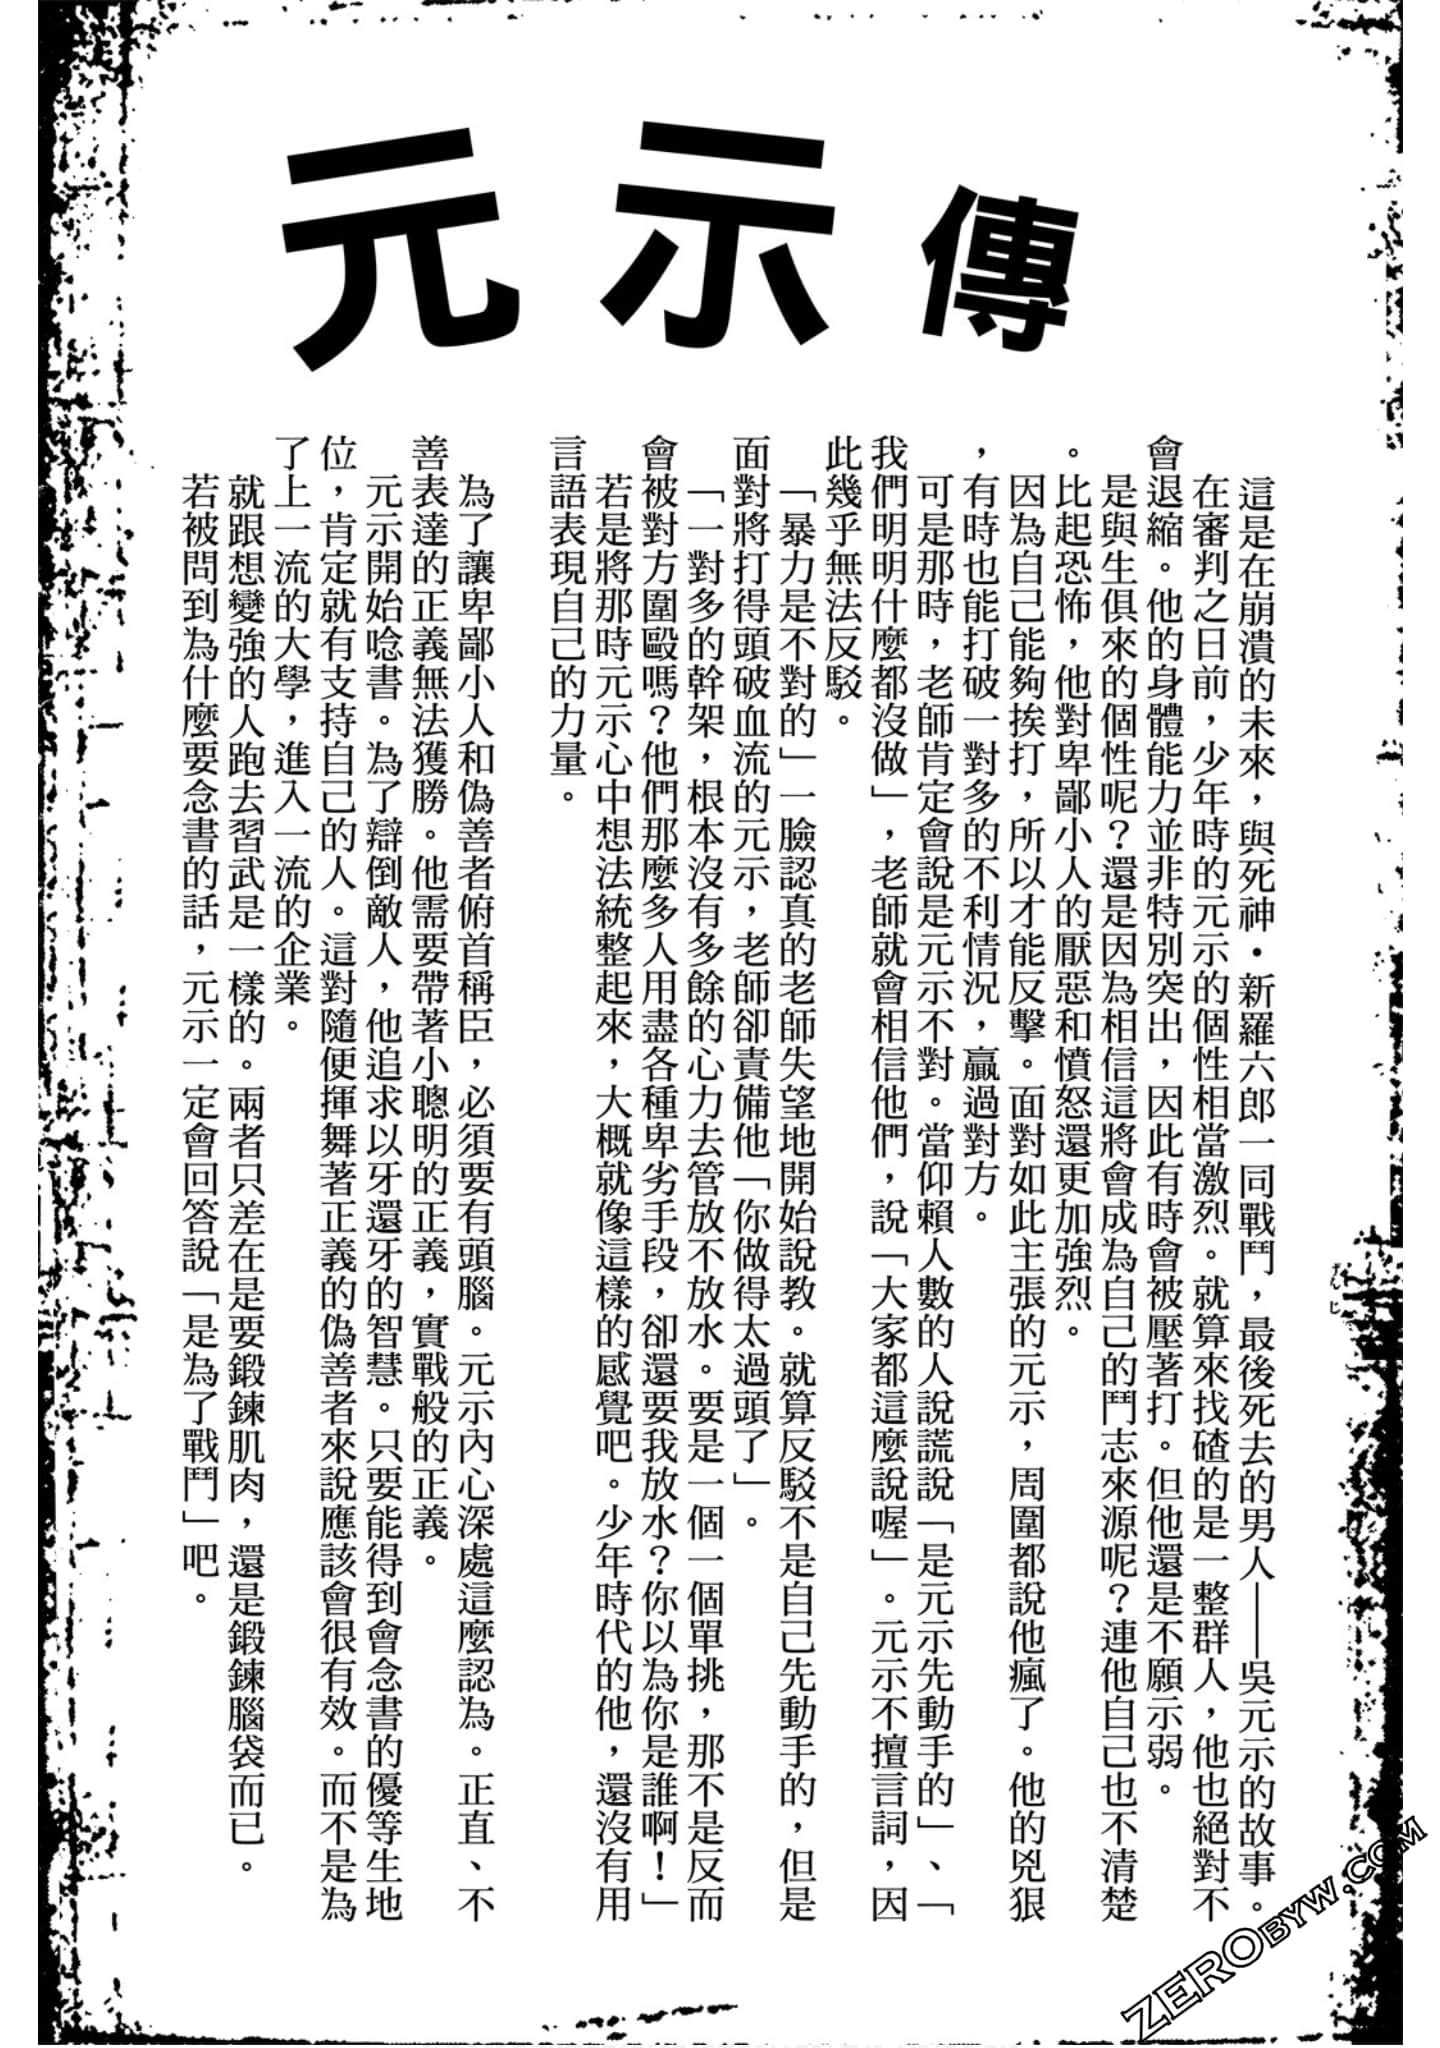 元示傳
這是在崩潰的未來，與死神・新羅六郎一同戰鬥，最後死去的男人——吳元示的故事。
在審判之日前，少年時的元示的個性相當激烈。就算來找碴的是一整群人，他也絕對不
會退縮。他的身體能力並非特別突出，因此有時會被壓著打。但他還是不願示弱。
是與生俱來的個性呢？還是因為相信這將會成為自己的鬥志來源呢？連他自己也不清楚
。比起恐怖，他對卑鄙小人的厭惡和憤怒還更加強烈。
因為自己能夠挨打，所以才能反擊。面對如此主張的元示，周圍都說他瘋了。他的兇狠
，有時也能打破一對多的不利情況，贏過對方。
可是那時，老師肯定會說是元示不對。當仰賴人數的人說謊說「是元示先動手的」、「
我們明明什麼都沒做」，老師就會相信他們，說「大家都這麼說喔」。元示不擅言詞，因
此幾乎無法反駁。
「暴力是不對的」一臉認真的老師失望地開始說教。就算反駁不是自己先動手的，但是
面對將打得頭破血流的元示，老師卻責備他「你做得太過頭了」。
「一對多的幹架，根本沒有多餘的心力去管放不放水。要是一個一個單挑，那不是反而
會被對方圍毆嗎？他們那麼多人用盡各種卑劣手段，卻還要我放水？你以為你是誰啊！」
若是將那時元示心中想法統整起來，大概就像這樣的感覺吧。少年時代的他，還沒有用
言語表現自己的力量。
為了讓卑鄙小人和偽善者俯首稱臣，必須要有頭腦。元示內心深處這麼認為。正直、不
善表達的正義無法獲勝。他需要帶著小聰明的正義，實戰般的正義。
元示開始唸書。為了辯倒敵人，他追求以牙還牙的智慧。只要能得到會念書的優等生地
位，肯定就有支持自己的人。這對隨便揮舞著正義的偽善者來說應該會很有效。而不是為
了上一流的大學，進入一流的企業。
就跟想變強的人跑去習武是一樣的。兩者只差在是要鍛鍊肌肉，還是鍛鍊腦袋而已。
若被問到為什麼要念書的話，元示一定會回答說「是為了戰鬥」吧。
げんじ
ZEROBYW.COM